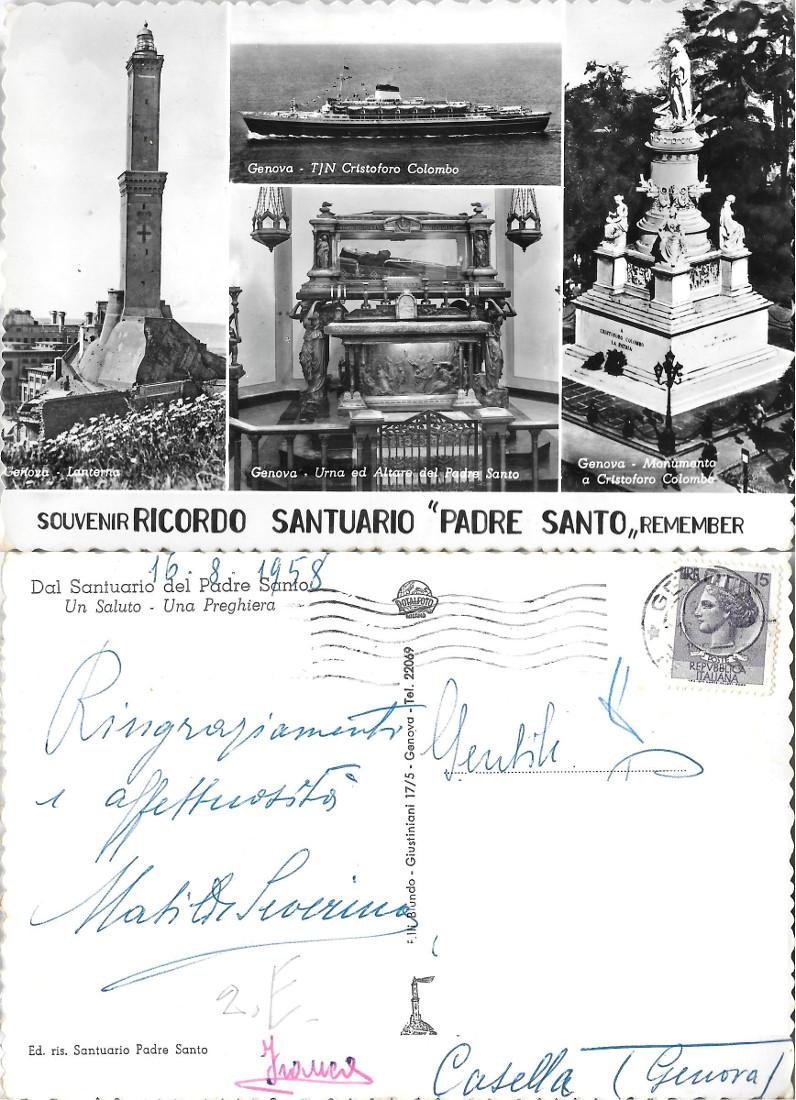 Genova - T/N Cristoforo Colombo
Genova - Lanterna
Genova - Urna ed Altare del Padre Santo
A
CRISTOFORO COLOMBO
LA PATRIA
Genova - Monumento
a Cristoforo Colombo
SOUVENIR RICORDO SANTUARIO "PADRE SANTO„ REMEMBER
16-8-1958
Dal Santuario del Padre Santo
Un Saluto - Una Preghiera
Ringraziamenti
e affettuosità
Matilde Severino
2. E.
Ed. ris. Santuario Padre Santo
Franca
F.lli Biundo - Giustiniani 17/5 - Genova - Tel. 22069
ROTALFOTO
MILANO
GE
LIRE 15
POSTE
REPVBBLICA
ITALIANA
Gentile
Casella (Genova)